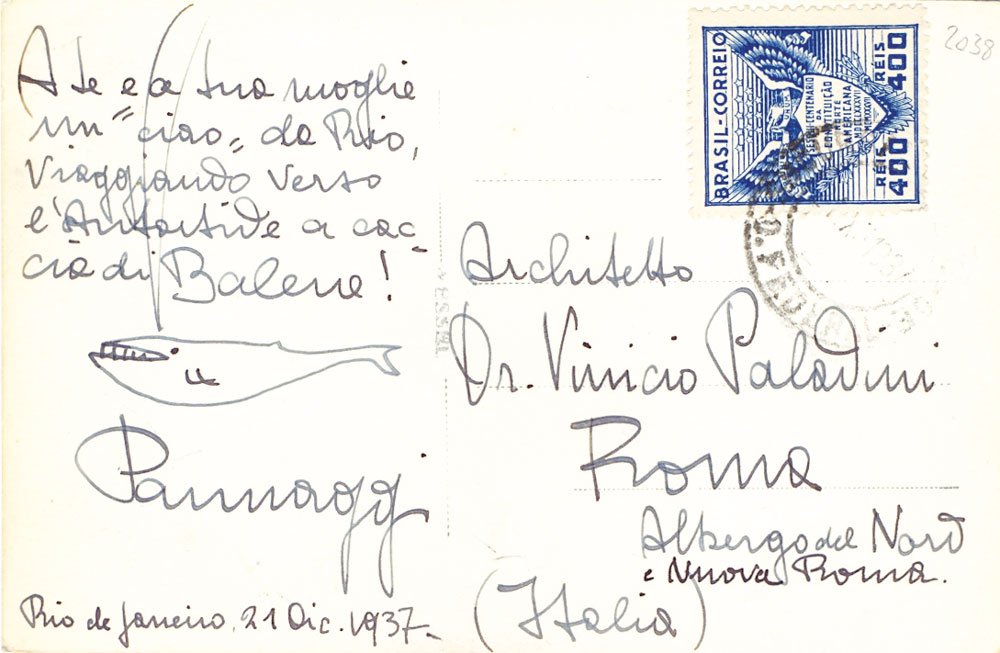 A te e a tua moglie
un "ciao" da Rio,
viaggiando verso
l'Antartide a cac-
cia di Balene!
Pannaggi
Rio de Janeiro, 21 Dic. 1937-
2038
BRASIL-CORREIO
SESQUI-CENTENARIO
DA
CONSTITUIÇÃO
NORTE
AMERICANA
MDCCLXXXVII
MCMXXXVII
REIS 400
REIS 400
Architetto
Dr. Vinicio Paladini
Roma
Albergo del Nord
e Nuova Roma.
(Italia)